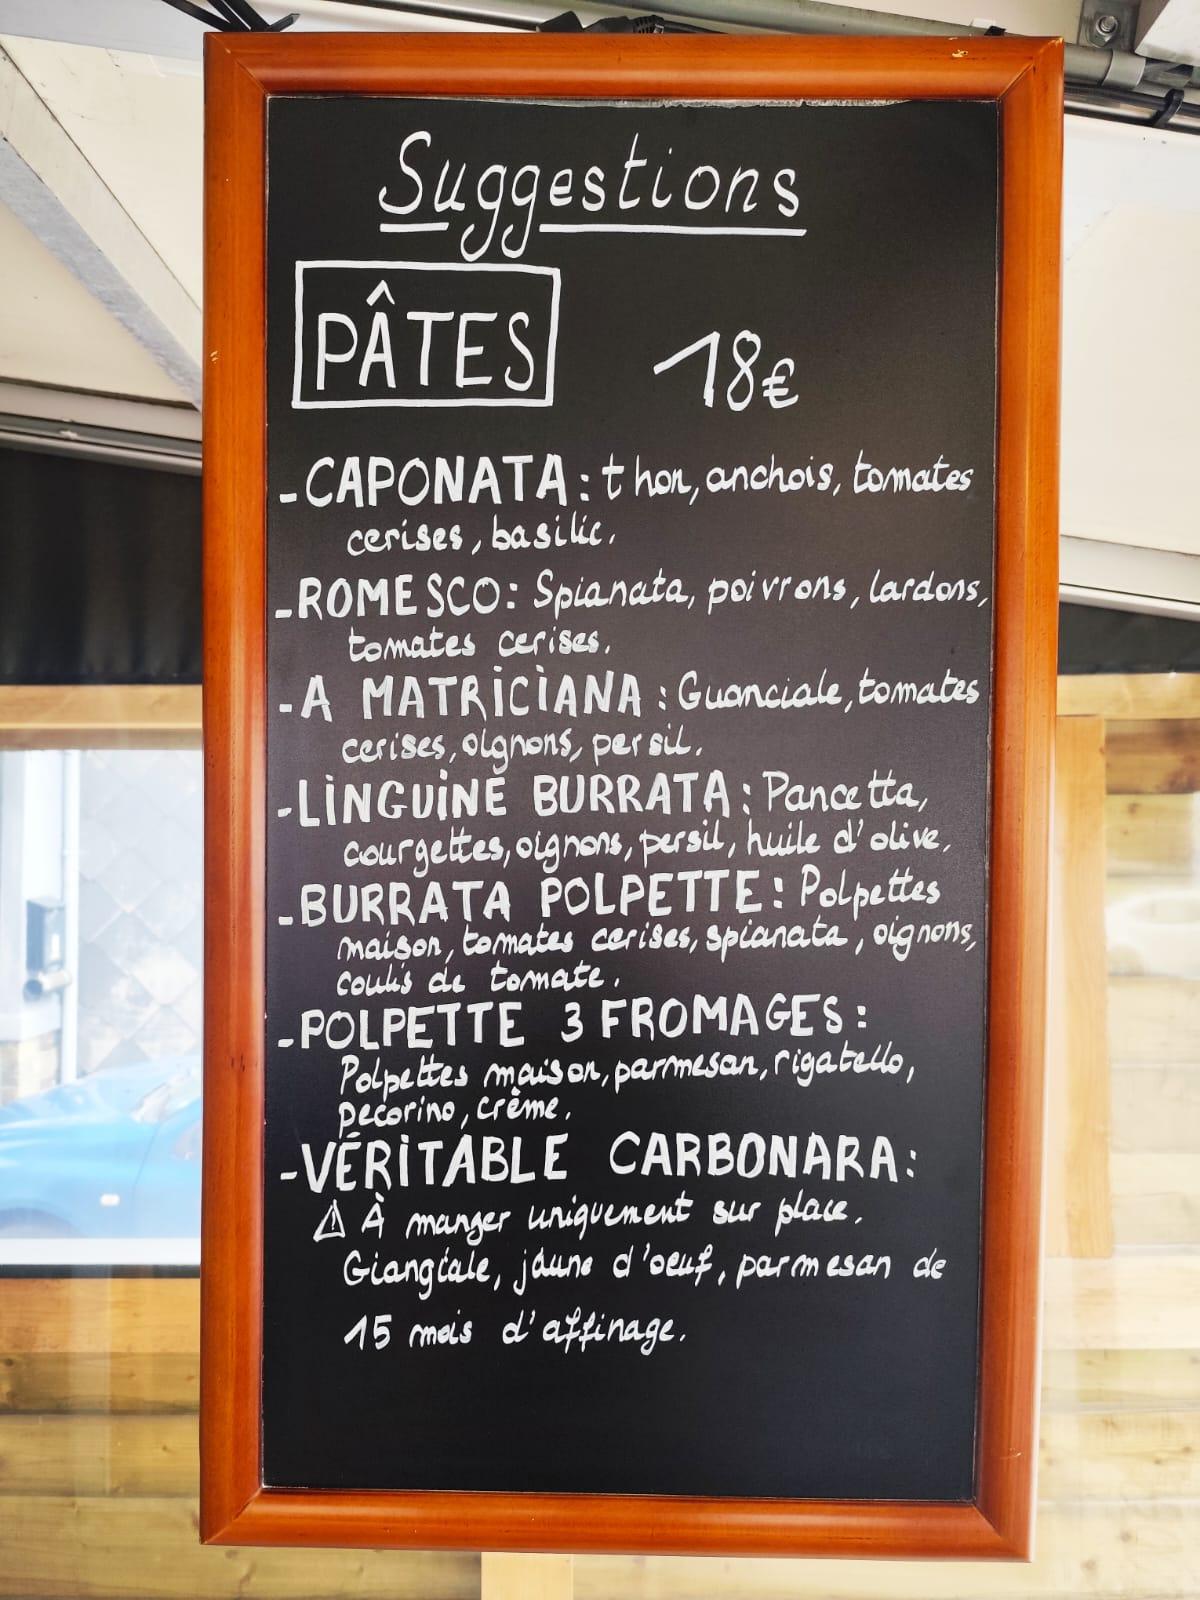 Suggestions
PÂTES 18€
-CAPONATA: thon, anchois, tomates
cerises, basilic.
-ROMESCO: Spianata, poivrons, lardons,
tomates cerises.
-A MATRICIANA: Guanciale, tomates
cerises, oignons, persil.
-LINGUINE BURRATA: Pancetta,
courgettes, oignons, persil, huile d'olive.
-BURRATA POLPETTE: Polpettes
maison, tomates cerises, spianata, oignons,
coulis de tomate.
-POLPETTE 3 FROMAGES:
Polpettes maison, parmesan, rigatello,
pecorino, crème.
-VÉRITABLE CARBONARA:
⚠ À manger uniquement sur place.
Giangiale, jaune d'oeuf, parmesan de
15 mois d'affinage.